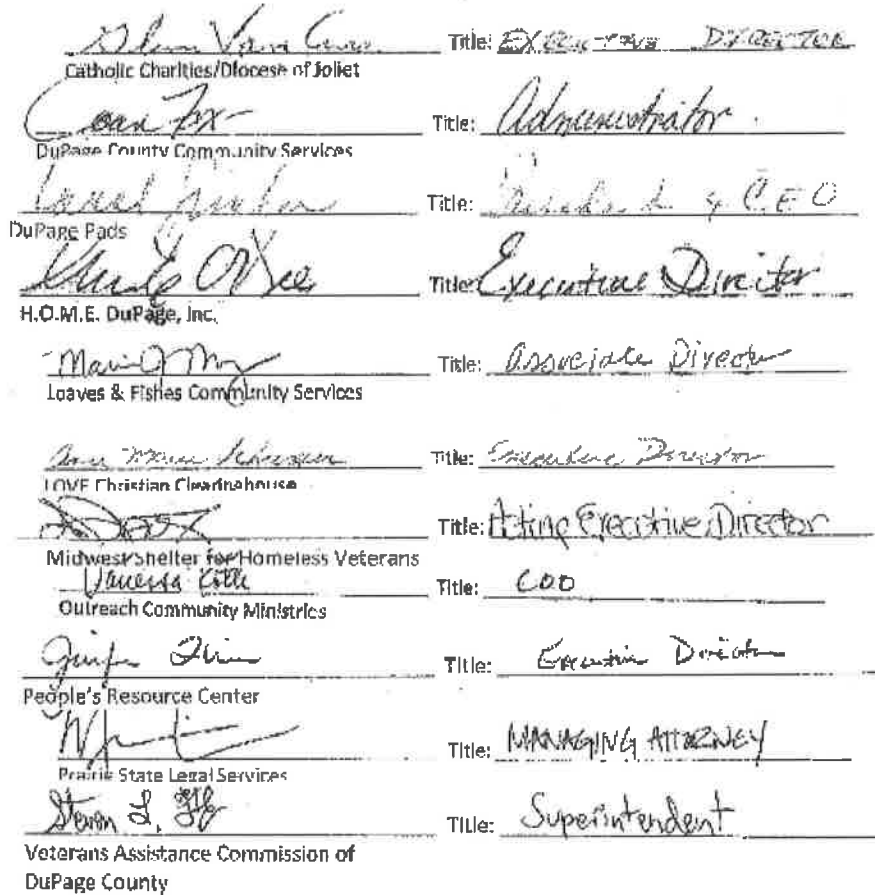 Title: EXECUTIVE DIRECTOR
Catholic Charities/Diocese of Joliet
Joan Fox Title: Administrator
DuPage County Community Services
Title: President & C.E.O
DuPage Pads
Title: Executive Director
H.O.M.E. DuPage, Inc.
Title: Associate Director
Loaves & Fishes Community Services
Ann Marie Title: Executive Director
LOVE Christian Clearinghouse
Title: Acting Executive Director
Midwest Shelter for Homeless Veterans
Vanessa Title: COO
Outreach Community Ministries
Title: Executive Director
People's Resource Center
Title: MANAGING ATTORNEY
Prairie State Legal Services
Steven L. Title: Superintendent
Veterans Assistance Commission of
DuPage County